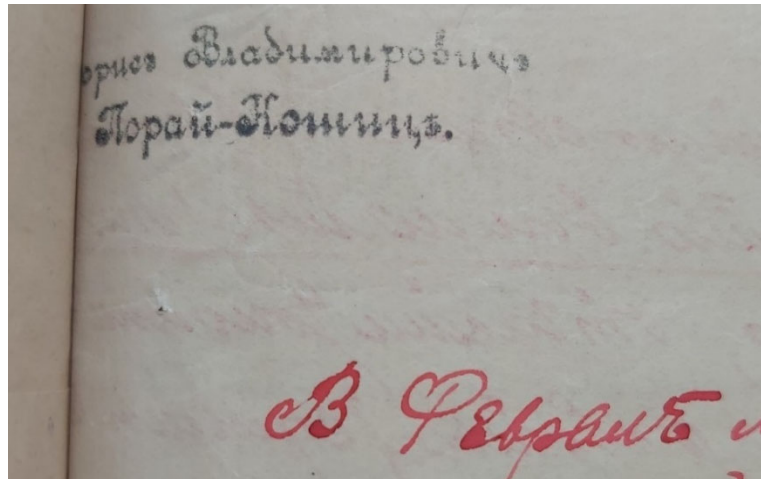 орисъ Владимировичъ
Порай-Кошицъ.
В Февралѣ